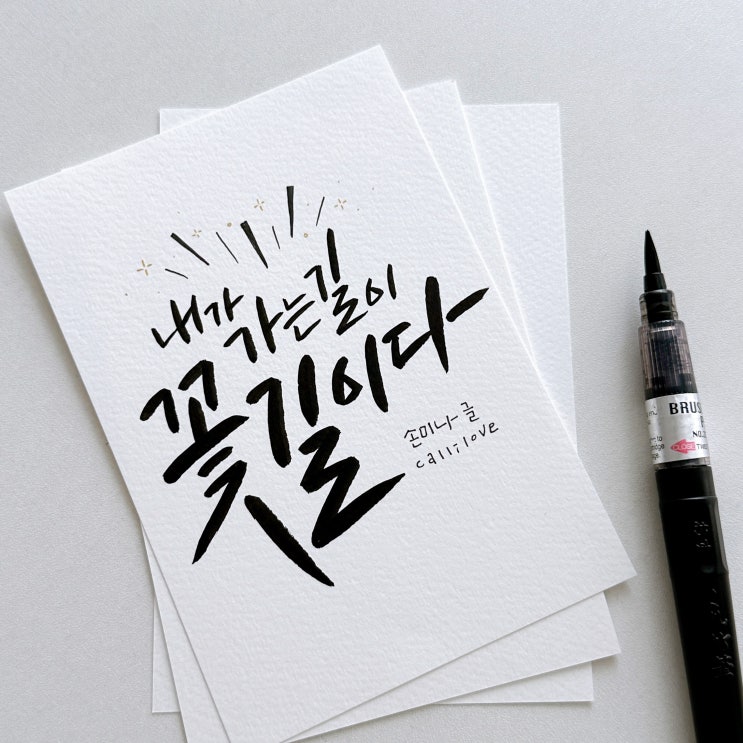 내가 가는 길이
꽃길이다
손미나 글
callilove
BRUS
NO.
CLOSE